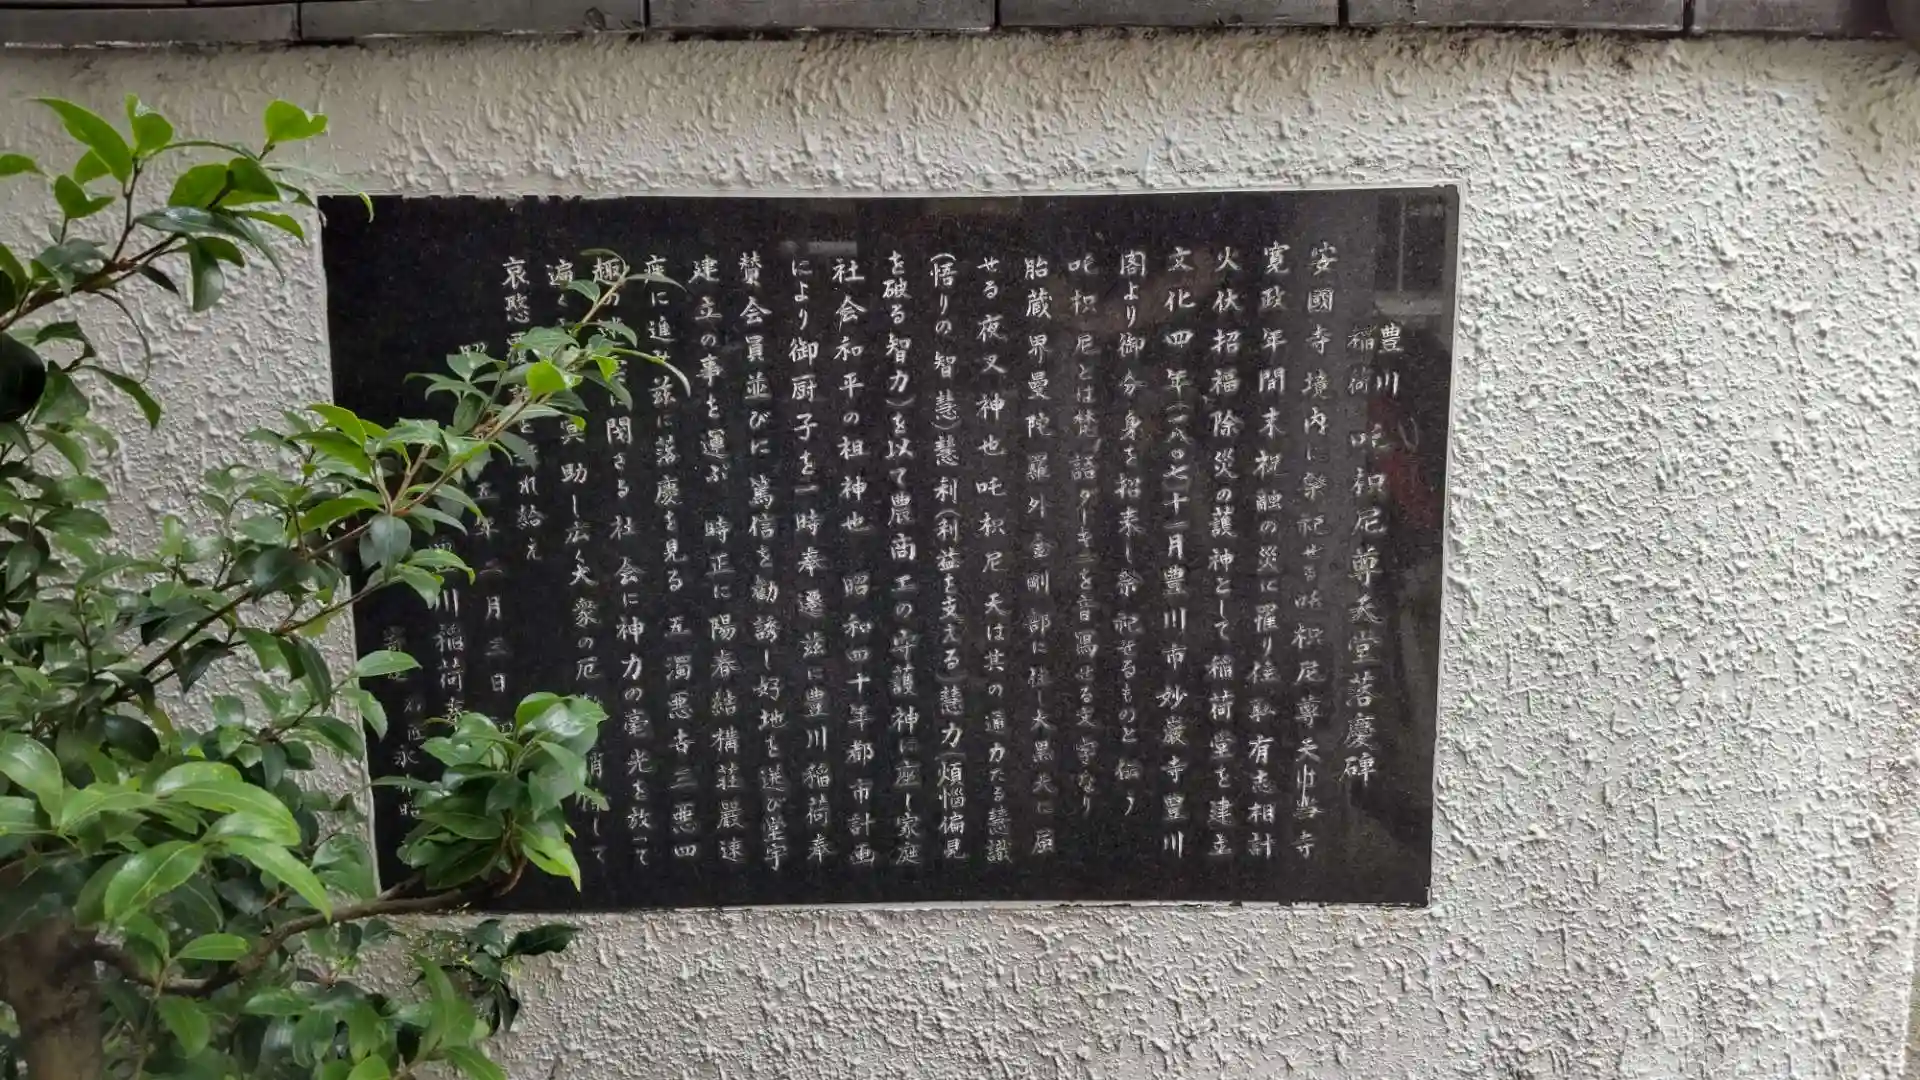 豊川稲荷 吒枳尼尊天堂落慶碑
安國寺境内に祭祀せる吒枳尼尊天は当寺
寛政年間末祝融の災に罹り住職有志相計
火伏招福除災の護神として稲荷堂を建立
文化四年(一八〇七)十一月豊川市妙厳寺豊川
閣より御分身を招来し祭祀せるものと伝う
吒枳尼とは梵語ダーキニを音寫せる文字なり
胎蔵界曼陀羅外金剛部に住し大黒天に屆
せる夜叉神也吒枳尼天は其の通力たる慧識
(悟りの智慧)慧利(利益を支える)慧力(煩惱偏見
を破る智力)を以て農商工の守護神に座し家庭
社会和平の祖神也 昭和四十年都市計画
により御厨子を一時奉遷茲に豊川稲荷奉
賛会員並びに篤信を勧誘し好地を選び堂宇
建立の事を運ぶ 時正に陽春結構荘嚴速
疾に進み茲に落慶を見る 五濁悪寺三悪四
趣の に閉さる社会に神力の毫光を放って
遍く 冥助し広く大衆の厄 消 して
哀愍 れ給え
昭 五年二月三日
川稲荷奉
永 昭